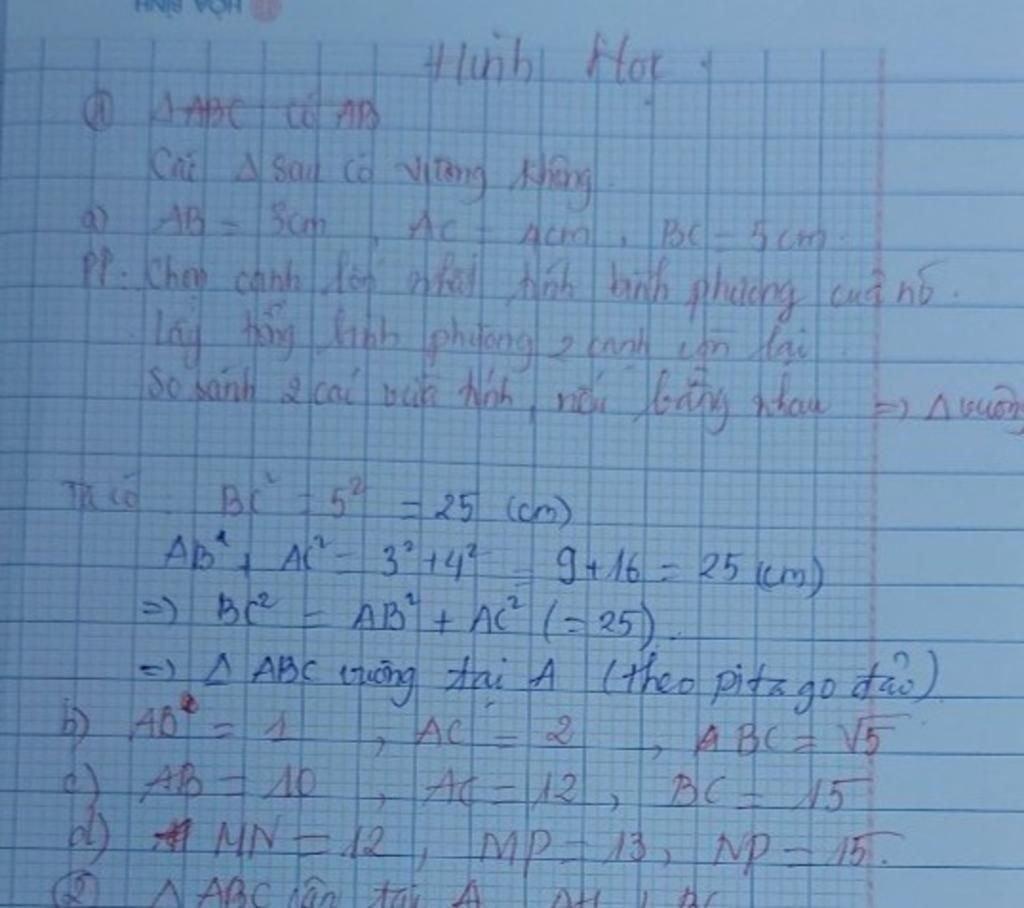 HÒA BÌNH
Hình Học
① Δ ABC có AB
Các Δ sau có vuông không
a) AB = 3cm, AC = 4cm, BC = 5cm.
PP: Chọn cạnh lớn nhất tính bình phương của nó.
Lấy tổng bình phương 2 cạnh còn lại.
So sánh 2 cái vừa tính, nếu bằng nhau => Δ vuông
Ta có: BC² = 5² = 25 (cm)
AB² + AC² = 3² + 4² = 9 + 16 = 25 (cm)
=> BC² = AB² + AC² (= 25).
=> Δ ABC vuông tại A (theo pitago đảo)
b) AB = 1, AC = 2, BC = √5
c) AB = 10, AC = 12, BC = 15
d) MN = 12, MP = 13, NP = 15.
② Δ ABC cân tại A